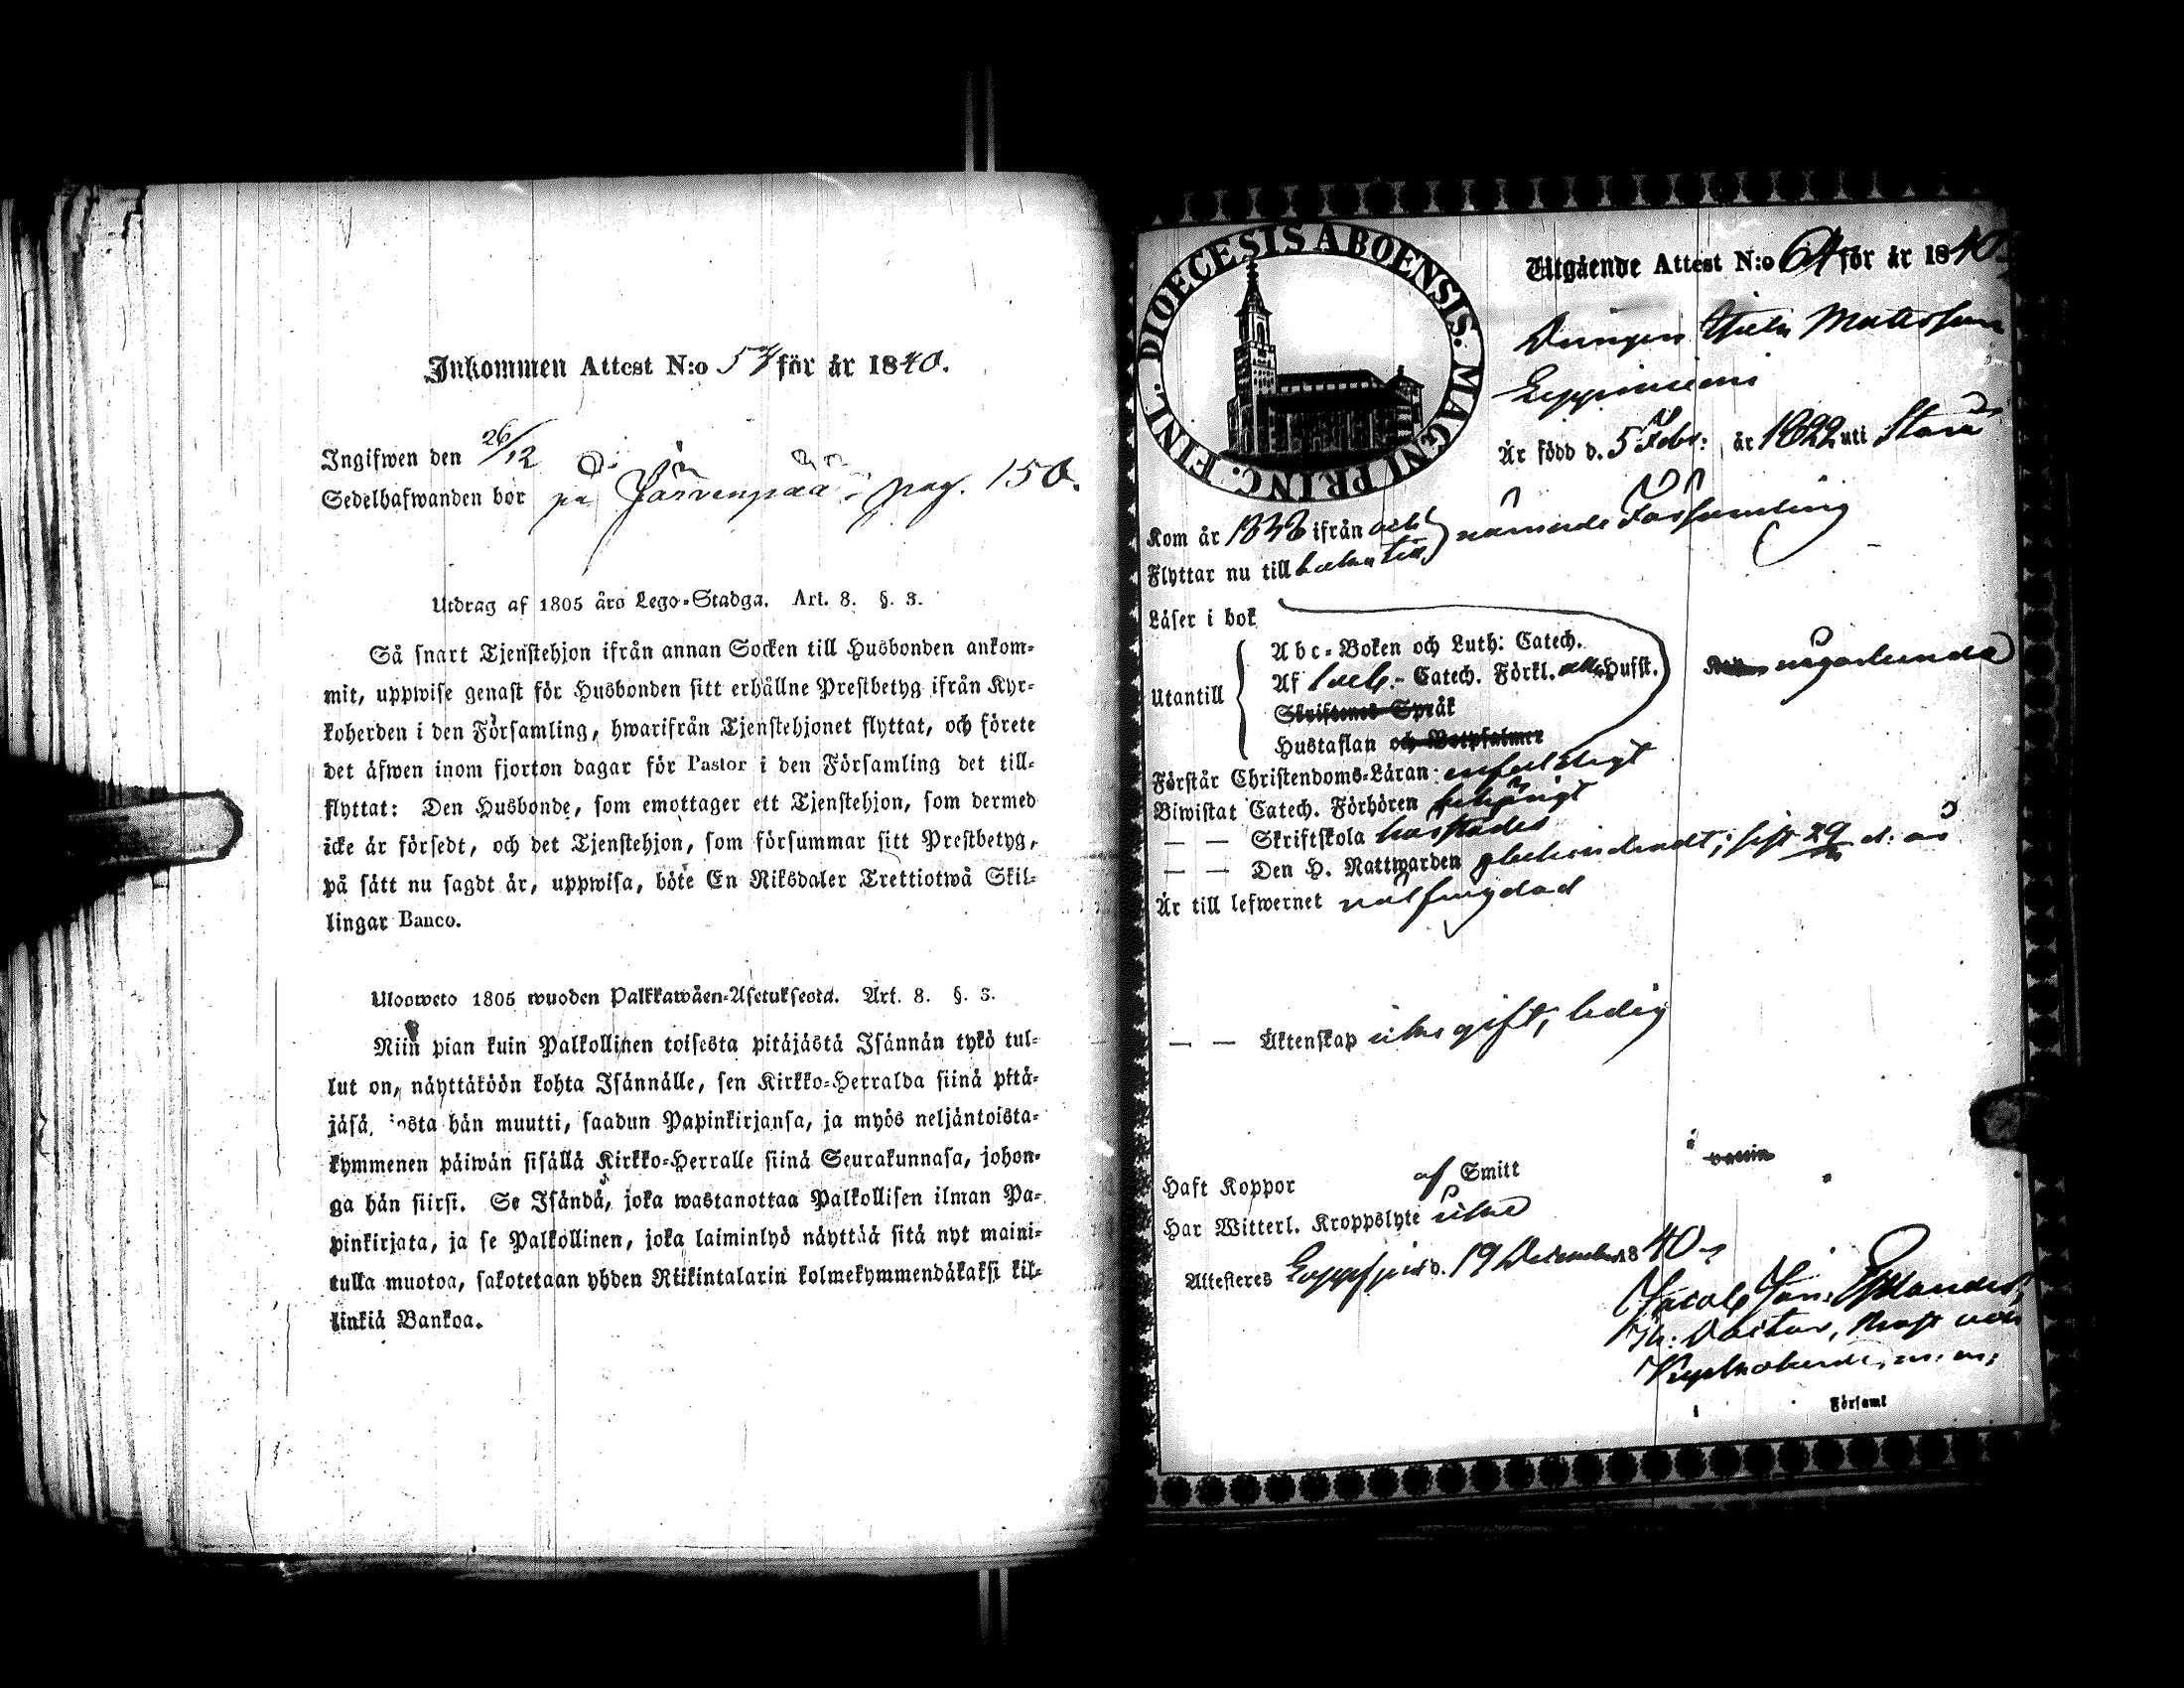 Inkommen Attest N:o 57 för år 1840.
Ingifwen den 26/12
Sedelhafwanden bor på Järvenpää pag. 150.
Utdrag af 1805 års Lego-Stadga. Art. 8. §. 3.
Så snart Tjenstehjon ifrån annan Socken till Husbonden ankom-
mit, uppwise genast för Husbonden sitt erhållne Prestbetyg ifrån Kyr-
koherden i den Församling, hwarifrån Tjenstehjonet flyttat, och förete
det äfwen inom fjorton dagar för Pastor i den Församling det till-
flyttat: Den Husbonde, som emottager ett Tjenstehjon, som dermed
icke är försedt, och det Tjenstehjon, som försummar sitt Prestbetyg,
på sätt nu sagdt är, uppwisa, böte En Riksdaler Trettiotwå Skil-
lingar Banco.
Ulosweto 1805 wuoden Palkkawäen-Asetuksesta. Art. 8. §. 3.
Niin pian kuin Palkollinen toisesta pitäjästä Isännän tykö tul-
lut on, näyttäköön kohta Isännälle, sen Kirkko-Herralda siinä pitä-
jäsä, josta hän muutti, saadun Papinkirjansa, ja myös neljäntoista-
kymmenen päiwän sisällä Kirkko-Herralle siinä Seurakunnasa, johon-
ga hän siirsi. Se Isändä, joka wastanottaa Palkollisen ilman Pa-
pinkirjata, ja se Palkollinen, joka laiminlyö näyttää sitä nyt maini-
tulla muotoa, sakotetaan yhden Riikintalarin kolmekymmendäkaksi kil-
linkiä Bankoa.
DIOECESIS ABOENSIS. MAGNI PRINC. FINL.
Utgående Attest N:o 64 för år 1840
Drängen Mattsson
Leppiniemi
Är född d. 5 Febr: år 1822 uti
Kom år 1838 ifrån och
nämnde Församling
Flyttar nu till
Läser i bok
Abc-Boken och Luth: Catech.
Utantill
Af Catech. Förkl. Husst.
någorlunda
Skriftenes Språk
Hustaflan och Botpsalmer
Förstår Christendoms-Läran: enfaldigt
Biwistat Catech. Förhören
— — Skriftskola
— — Den H. Nattwarden obehindradt; sist 29 d. år
Är till lefwernet välfrejdad
— — Äktenskap icke gift, ledig
Haft Koppor af Smitt vaccin
Har Witterl. Kroppslyte icke
Attesteras d. 19 December 1840
Jacob Joh:
Doctor, Prost och
Kyrkoherde, m. m.
i Församl